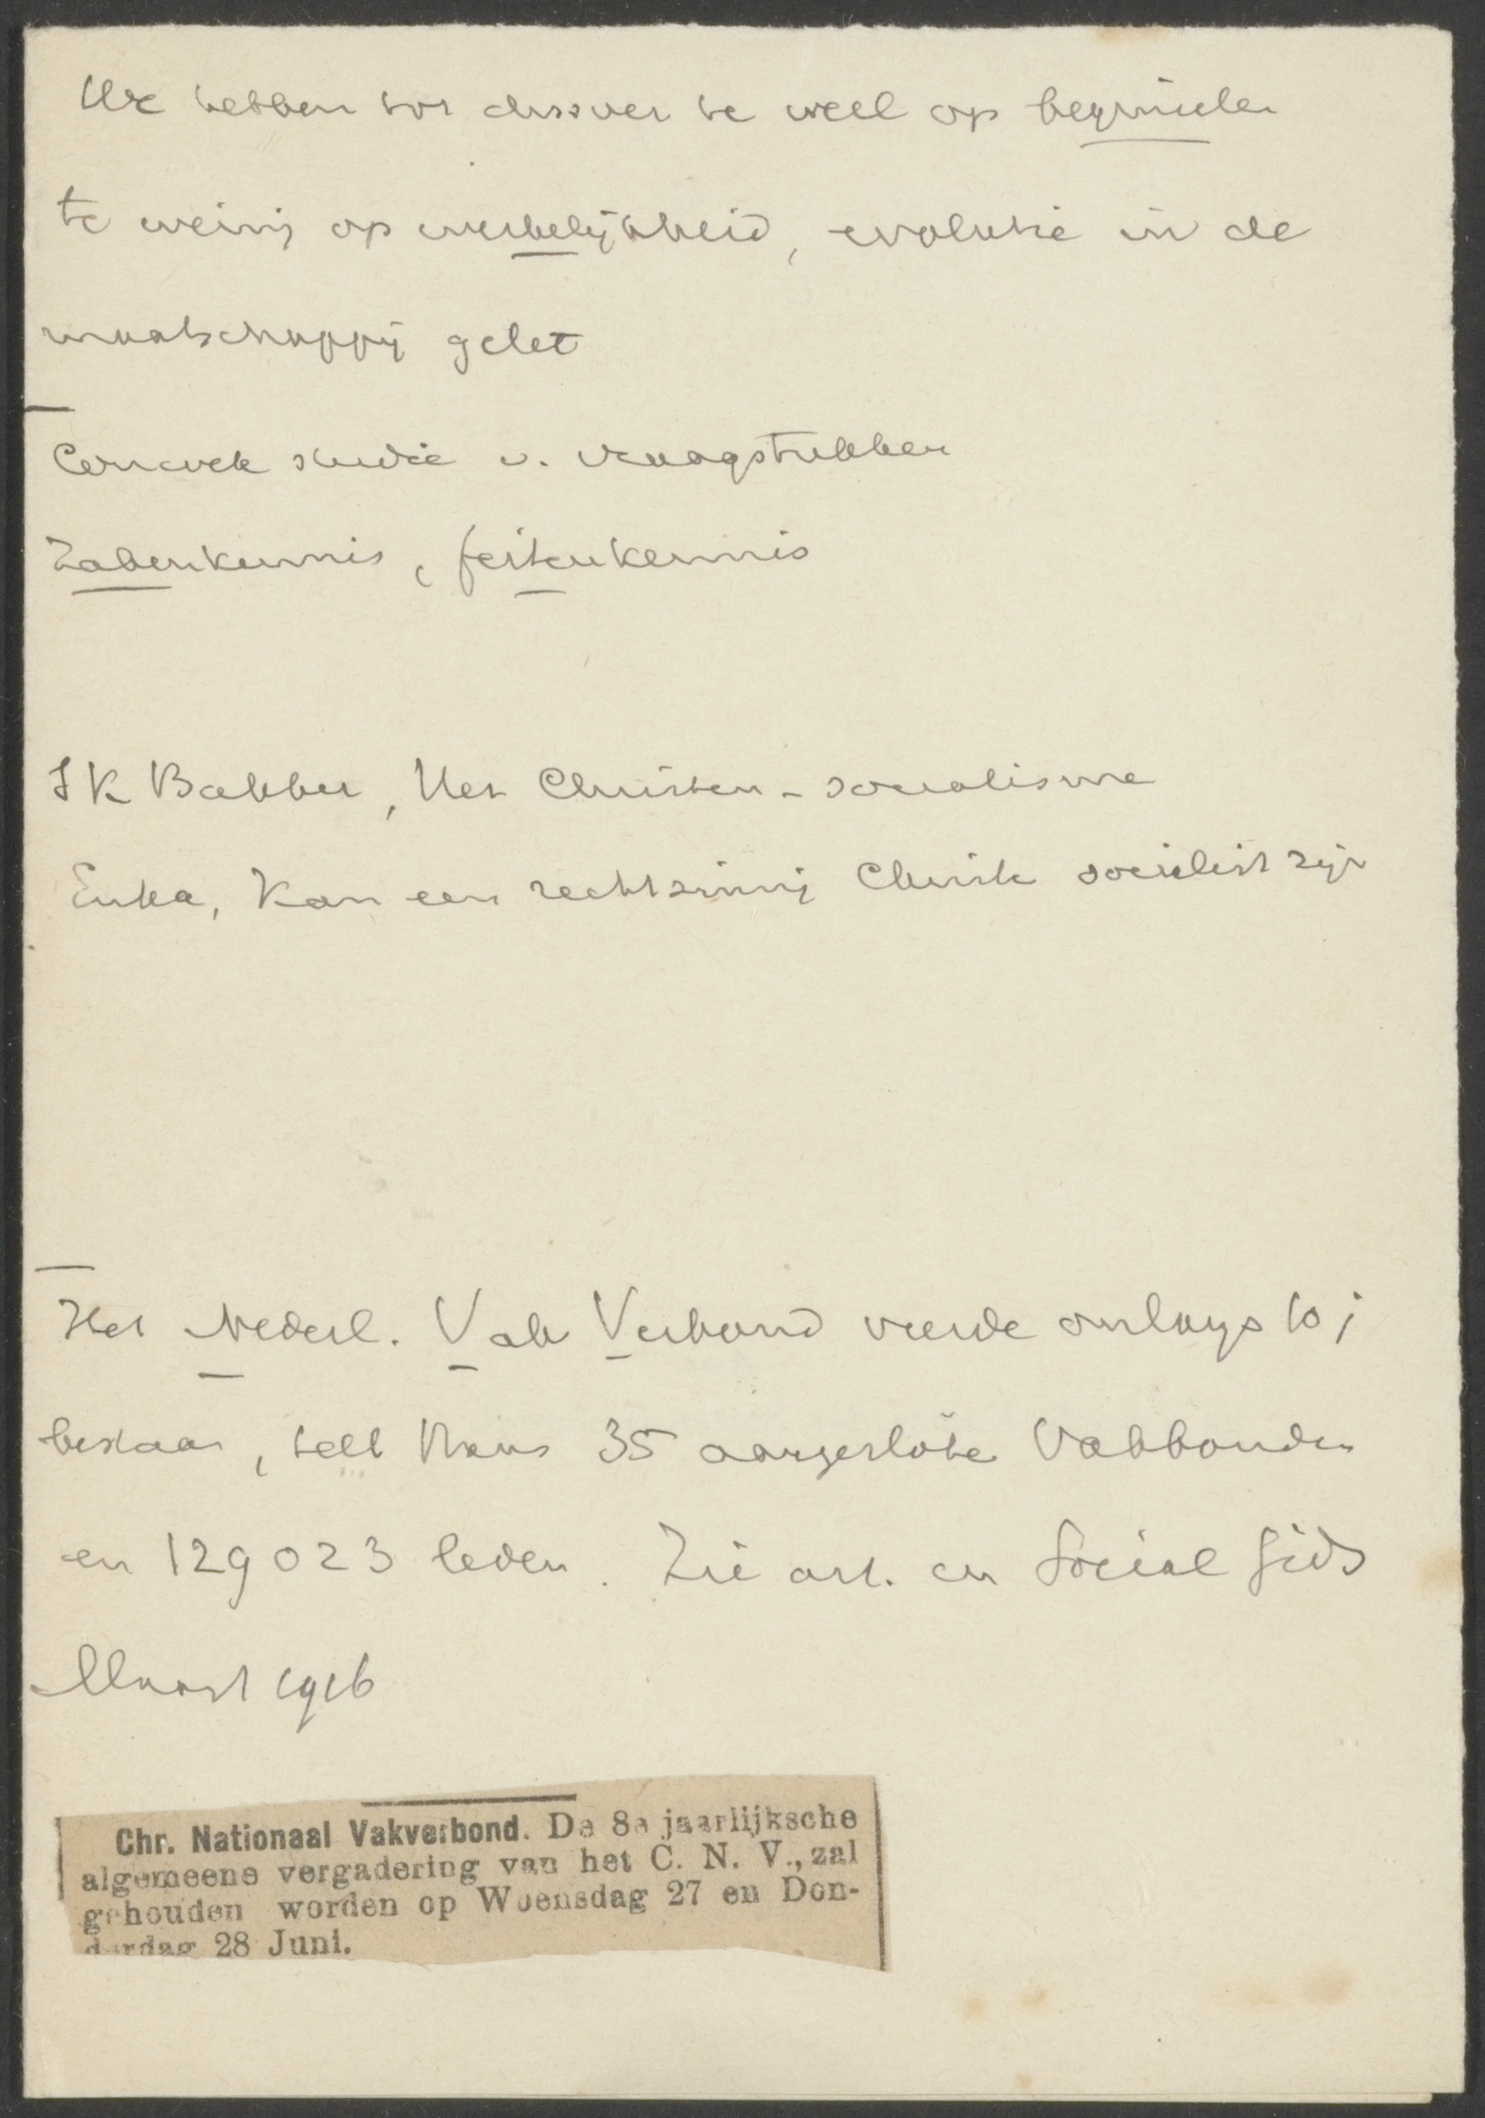 We hebben tot dusver te veel op beginselen
te weinig op werkelijkheid, evolutie in de
maatschappij gelet
Concrete studie v. vraagstukken
Zakenkennis, feitenkennis
I K Bakker, Het Christen-socialisme
Enka, Kan een rechtzinnig Christen socialist zijn
Het Nederl. Vak Verbond vierde onlangs 10 j
bestaan, telt thans 35 aangesloten Vakbonden
en 129023 leden. Zie art. en Social Gids
Maart 1916
Chr. Nationaal Vakverbond. De 8e jaarlijksche
algemeene vergadering van het C. N. V., zal
gehouden worden op Woensdag 27 en Don-
derdag 28 Juni.